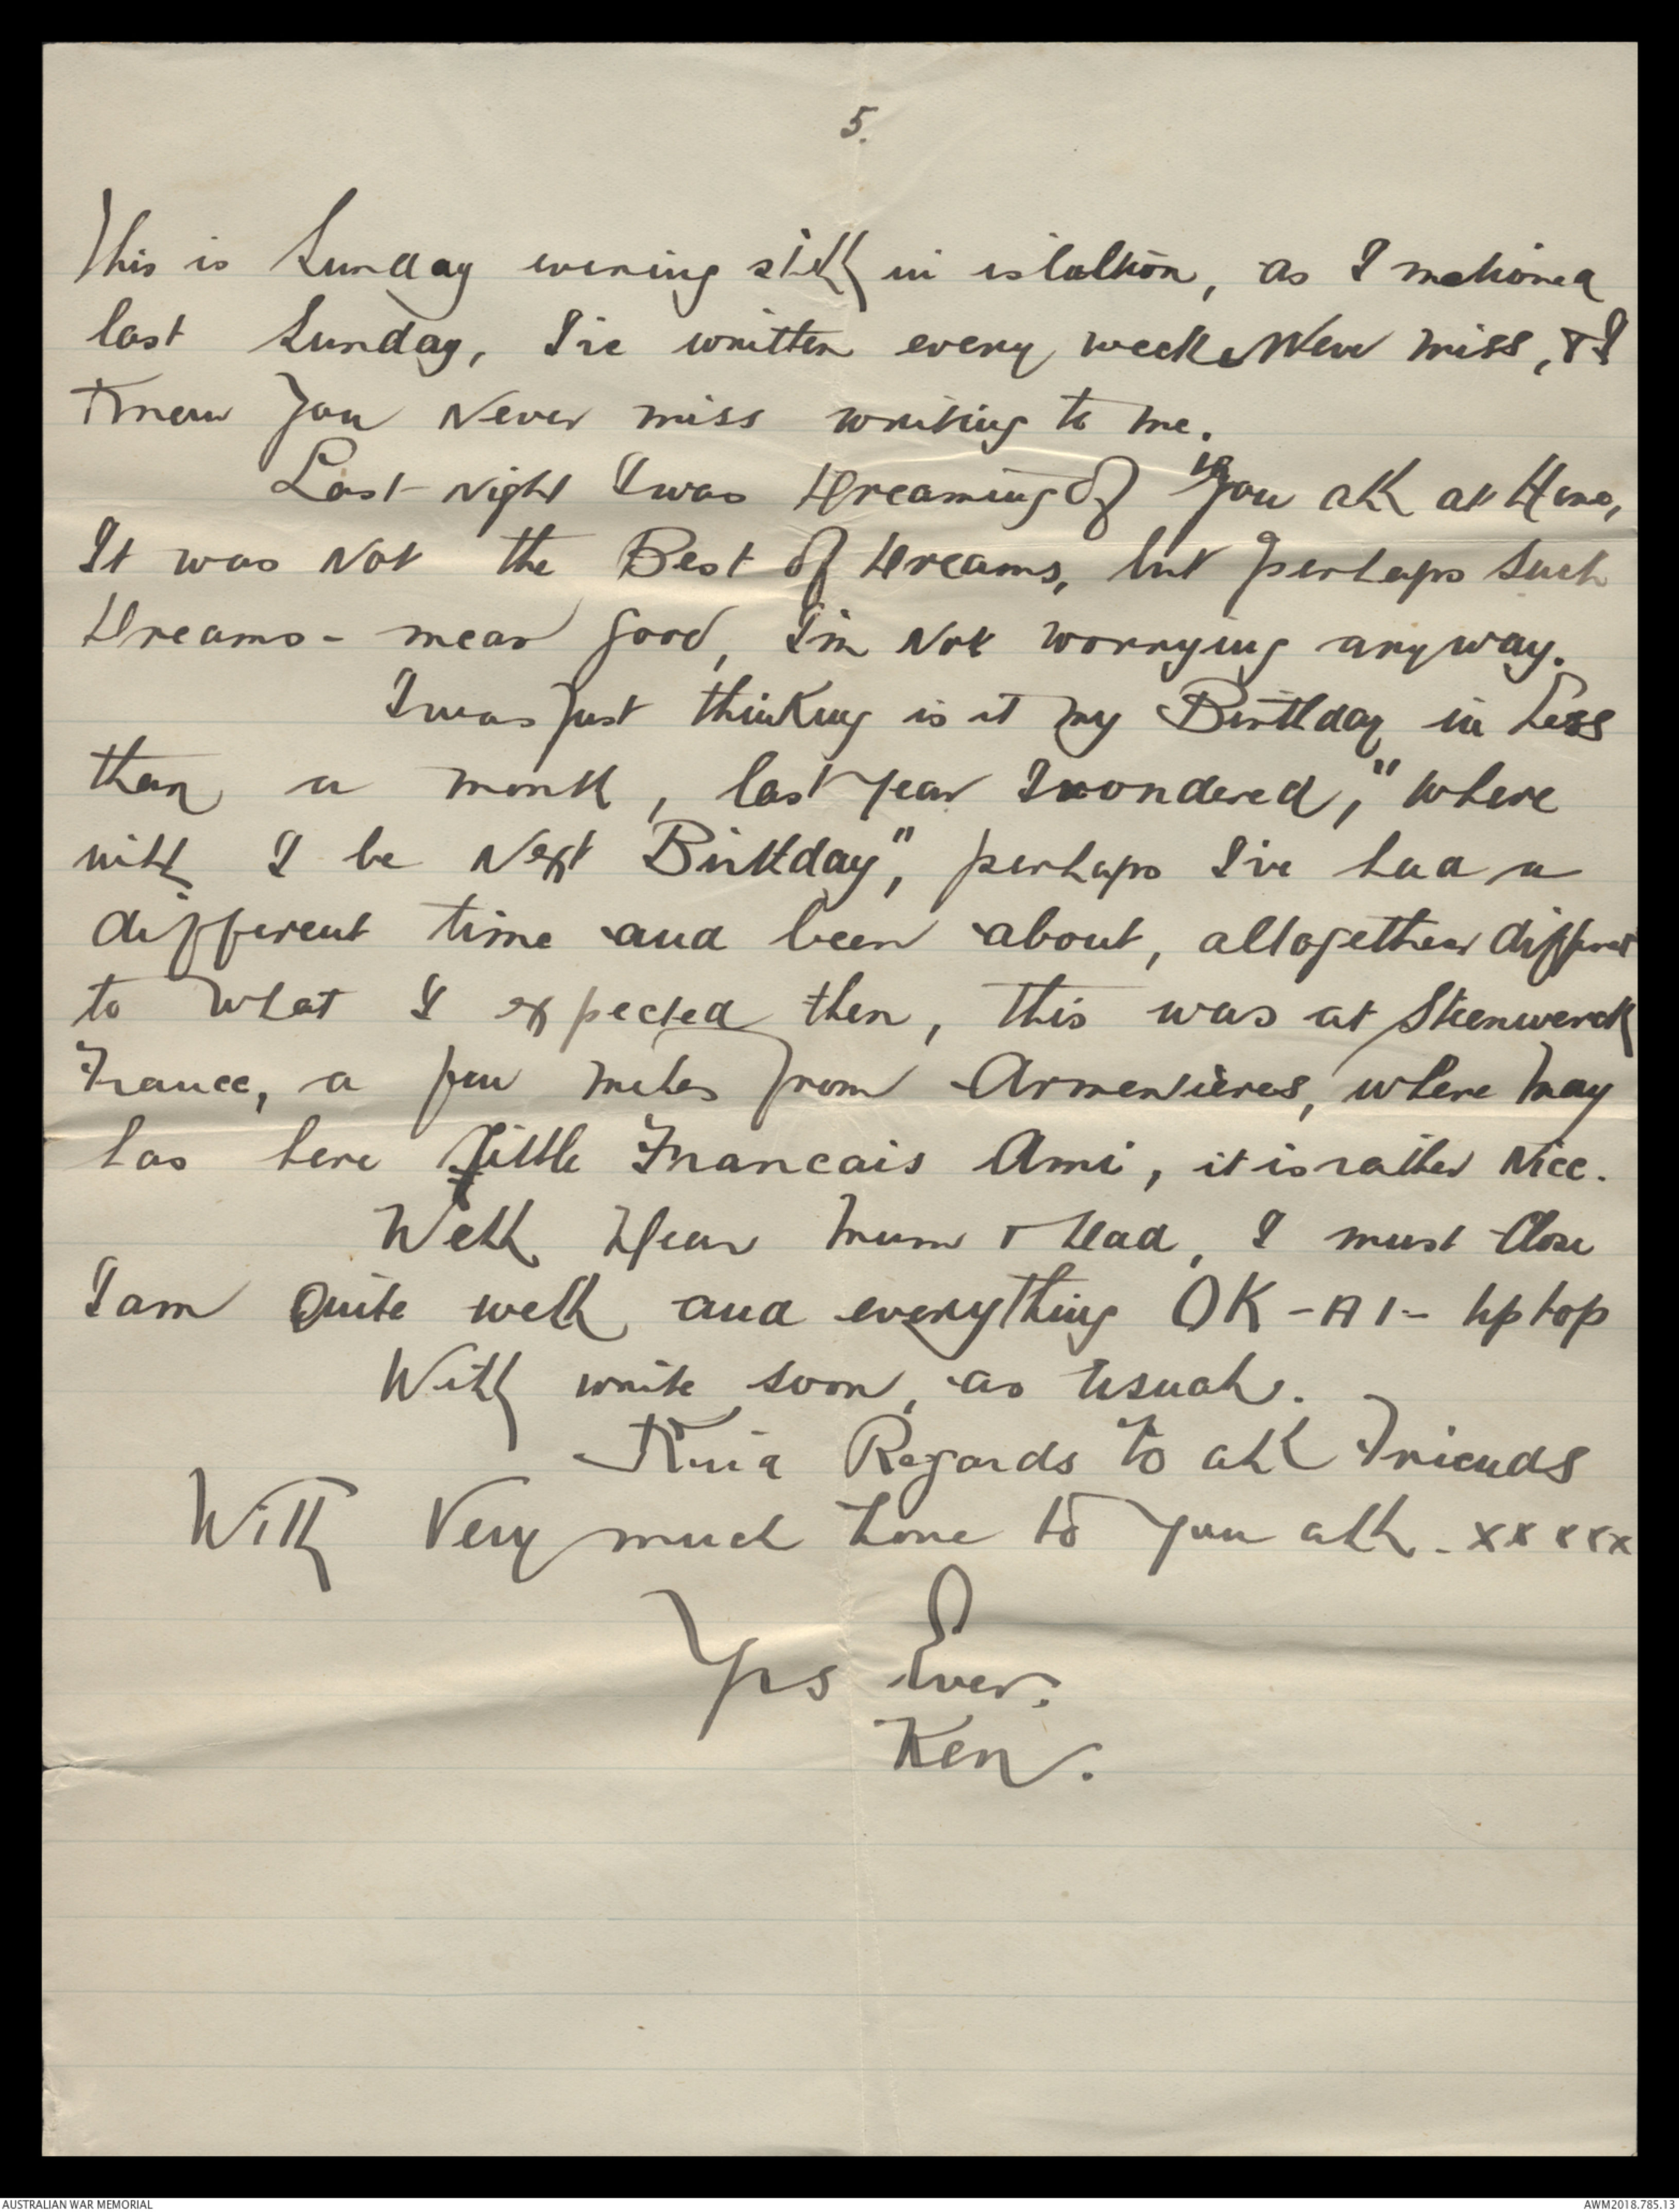 5.
This is Sunday evening still in isolation, as I mentioned
last Sunday, I've written every week Never miss, & I
know you never miss writing to me.
Last night I was dreaming of you all at Home,
It was Not the Best of dreams, but perhaps such
dreams - mean good, I'm Not worrying anyway.
I was just thinking is it my Birthday in Less
than a month, last year I wondered, "where
will I be Next Birthday", perhaps I've had a
different time and been about, altogether different
to what I expected then, this was at Steenwerck
France, a few miles from Armentieres, where May
has here little Francais Ami, it is rather Nice.
Well Dear Mum & Dad, I must Close
I am Quite well and everything OK - A1 - tip top
Will write soon, as usual.
Kind Regards to all Friends
With Very much Love to you all - xxxxx
Yrs Ever.
Ken.
AUSTRALIAN WAR MEMORIAL
AWM2018.785.13